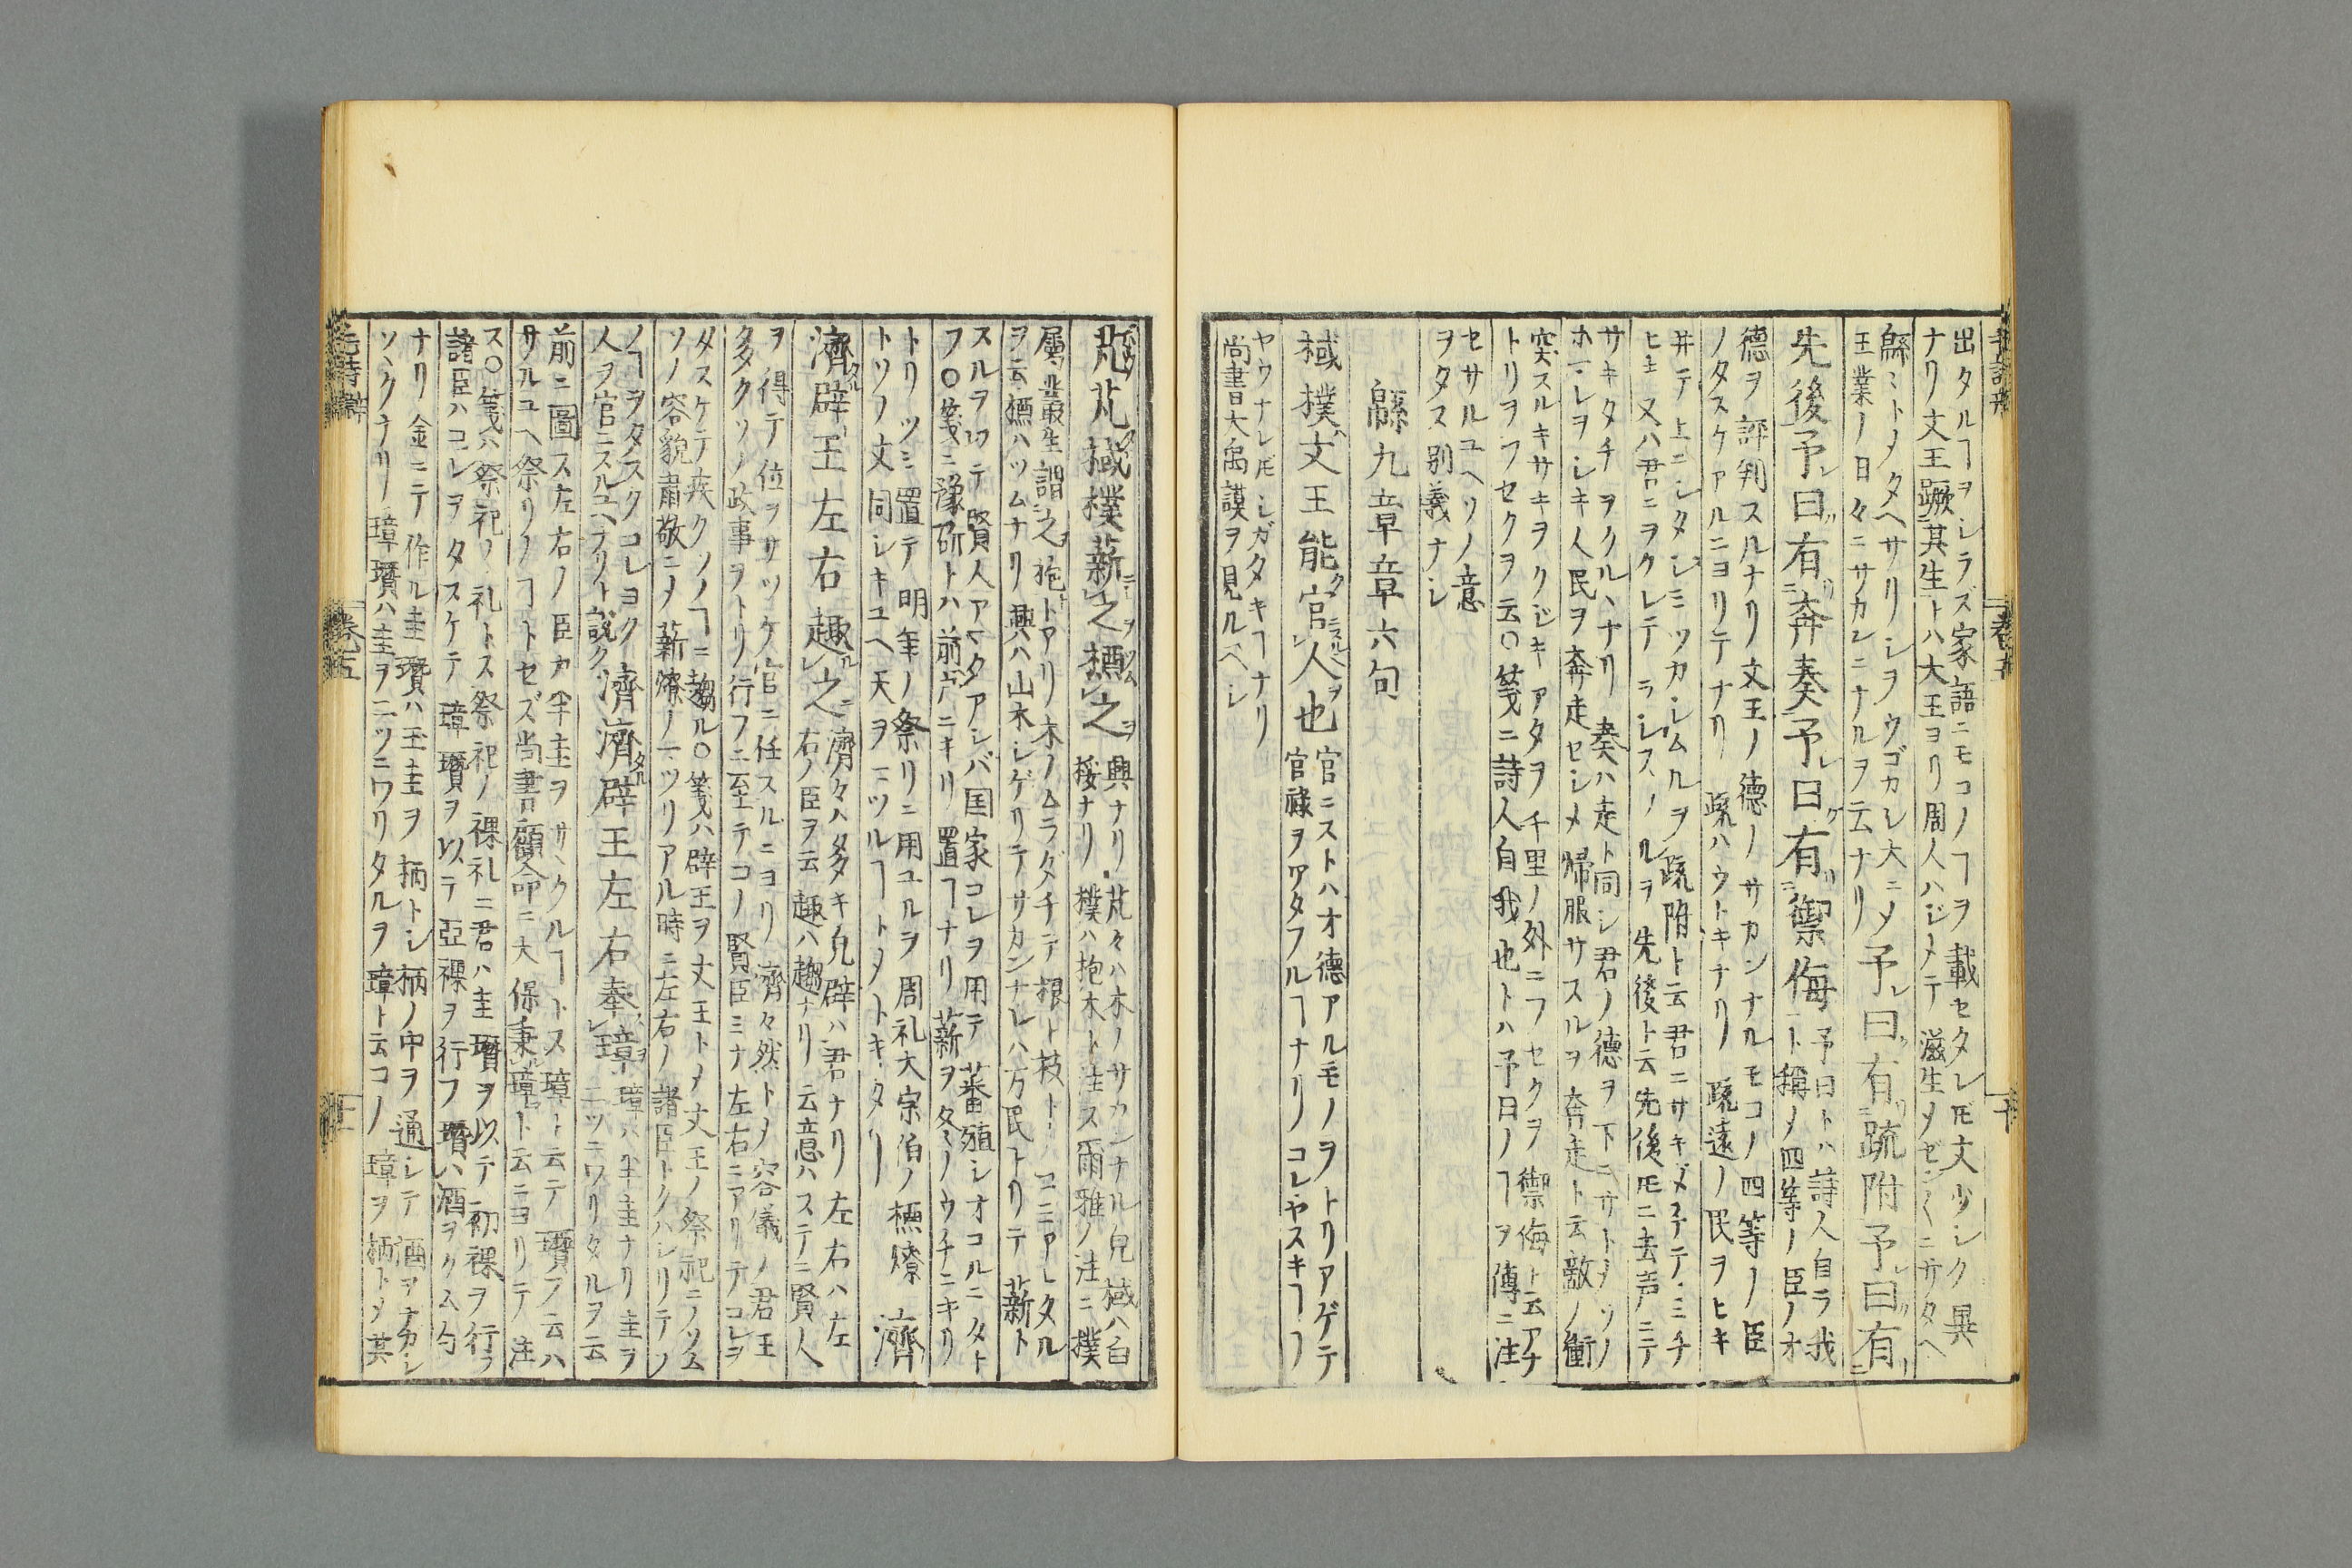 出タルヿヲシラズ家語ニモコノヿヲ載セタレ𪜈文少シク異
ナリ文王蹶其生トハ大王ヨリ周人ハジメテ滋生メゼンくニサタヘ
緜ミトメタヘサリシヲウゴカシ大ニメ
王業ノ日々ニサカレニナルヲ云ナリ
予曰有疏附予曰有
先後予曰有奔奏予曰有禦侮
予曰トハ詩人自ラ我
ト稱メ四等ノ臣ノオ
德ヲ評判スルナリ文王ノ德ノサカンナルモコノ四等ノ臣
ノタスケアルニヨリテナリ疏ハウトキナリ疏遠ノ民ヲヒキ
井テ上ニシタシミツカシムルヲ疏附ト云君ニサキダチテミチ
ビキ又ハ君ニヲクレテラシスノルヲ先後ト云先後𪜈ニ去声ニテ
サキタチヲクルヽナリ奏ハ走ト同シ君ノ德ヲ下ニサトメソノ
ホマレヲシキ人民ヲ奔走セシメ帰服サスルヲ奔走ト云敵ノ衝
突スルキサキヲクジキアタヲ千里ノ外ニフセクヲ禦侮ト云アナ
トリヲフセクヲ云〇箋ニ詩人自我也トハ予曰ノヿヲ傳ニ注
セサルユヘソノ意
ヲタス別義ナシ
緜九章章六句
棫樸文王能官人也
官ニストハオ德アルモノヲトリアゲテ
官祿ヲワタフルヿナリコレヤスキヿノ
ヤウナレ𪜈シガタキヿナリ
尚書曰大禹謨ヲ見ルベシ
芃芃棫樸薪之槱之
興ナリ芃々ハ木ノサカンナル皃棫ハ白
桜ナリ樸ハ抱木ト注ス爾雅ノ注ニ樸
屬叢生謂之抱トアリ木ノムラダチテ根ト枝トノコニアレタル
ヲ云槱ハツムナリ興ハ山木シゲリテサカンナレハ万民トリテ薪ト
スルヲ以テ賢人アマタアレバ国家コレヲ用テ蕃殖シオコルニタト
フ〇箋ニ豫斫トハ前广ニキリ置ヿナリ薪ヲ冬ノウチニキリ
トリツミ置テ明年ノ祭リニ用ユルヲ周礼大宗伯ノ槱燎
トソノ文同シキユヘ天ヲマツルヿトメトキタリ
濟
濟辟王左右趣之
濟々ハ多キ皃辟ハ君ナリ左右ハ左
右ノ臣ヲ云趣ハ趨ナリ云意ハステニ賢人
ヲ得テ位ヲサツケ官ニ任スルニヨリ濟々然トメ容儀ノ君王
多クソノ政事ヲトリ行フニ至テコノ賢臣ミナ左右ニアリテコレヲ
タスケテ疾クソノヿニ趨ル〇箋ハ辟王ヲ文王トメ文王ノ祭祀ニノソム
ソノ容貌肅敬ニメ薪燎ノマツリアル時ニ左右ノ諸臣トクハシリテソ
ノヿヲタスクコレヨク
人ヲ官ニスルユヘナリト説ク
濟濟辟王左右奉璋
璋ハ半圭ナリ圭ヲ
二ツニワリタルヲ云
前ニ圖ス左右ノ臣カ半圭ヲサヽクルヿトス璋ト云テ瓚ヲ云ハ
サルユヘ祭リノヿトセズ尚書顧命ニ大保秉璋ト云ニヨリテ注
ス〇箋ハ祭祀ノ礼トス祭祀ノ裸礼ニ君ハ圭瓚ヲ以テ初裸ヲ行フ
諸臣ハコレヲタスケテ璋瓚ヲ以テ亞裸ヲ行フ瓚ハ酒ヲクム勺
ナリ金ニテ作ル圭瓚ハ玉圭ヲ柄トシ柄ノ中ヲ通シテ酒ヲナガシ
ソヽクナリ璋瓚ハ圭ヲ二ツニワリタルヲ璋ト云コノ璋ヲ柄トメ其